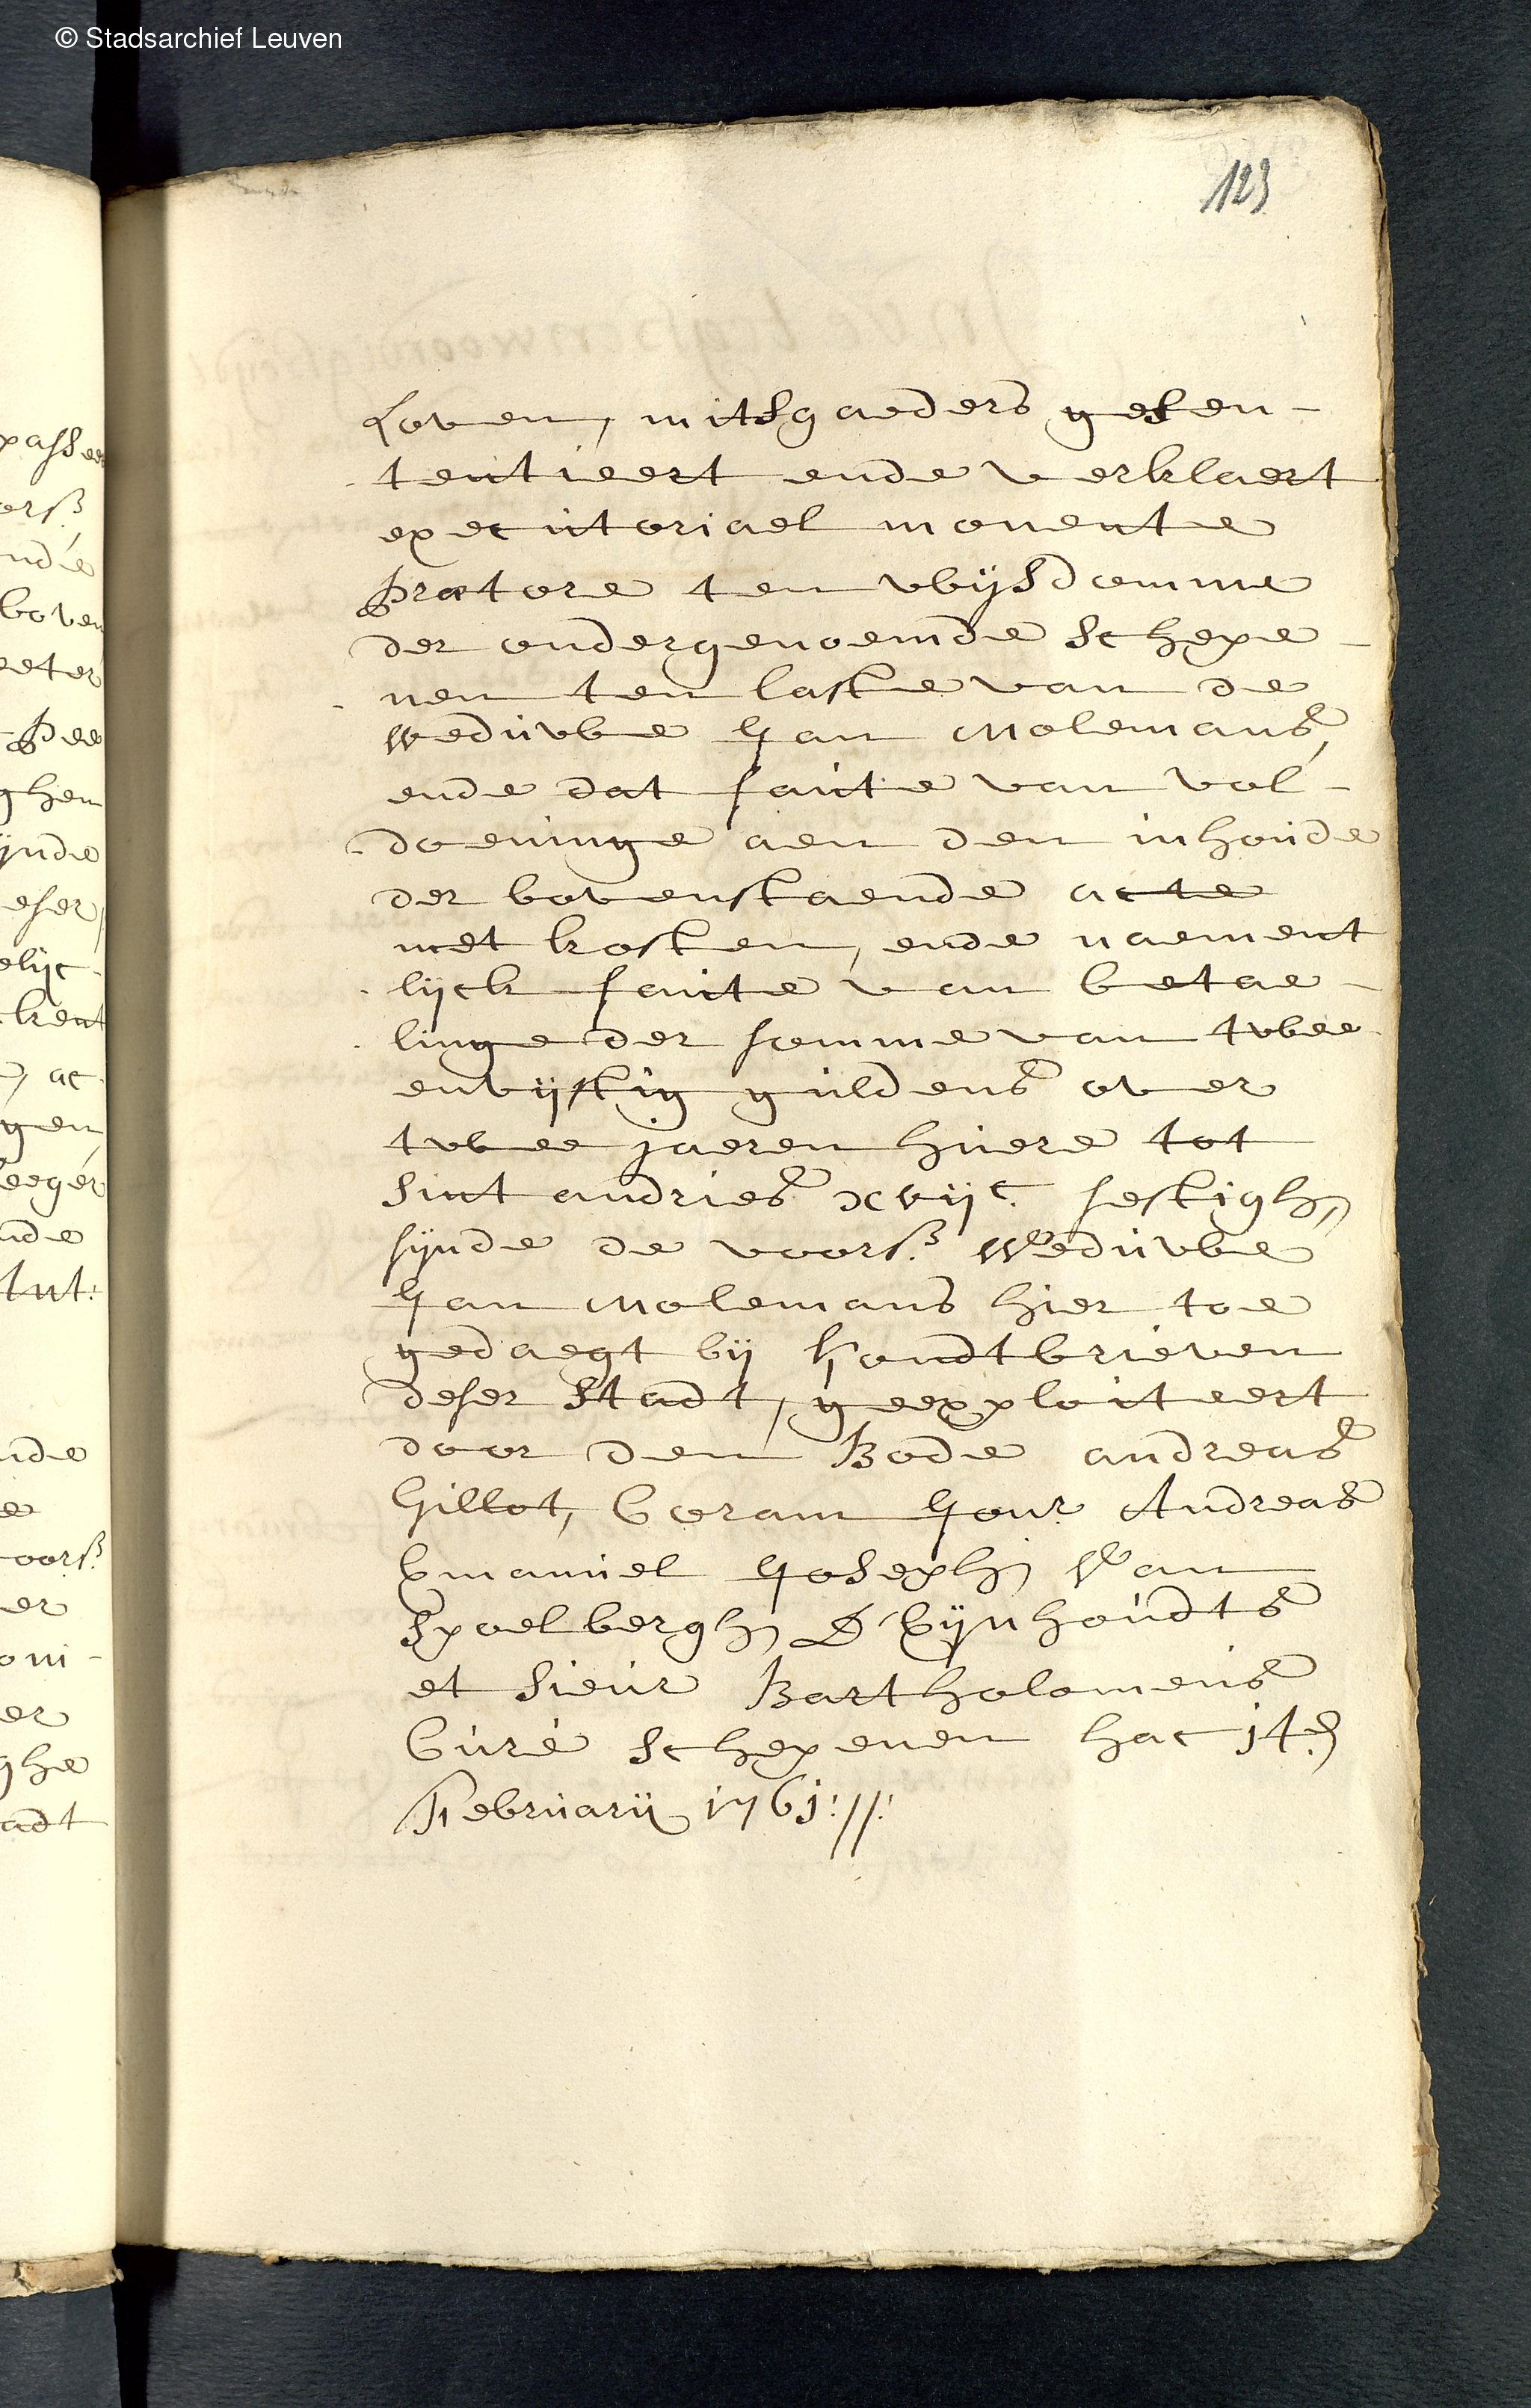 © Stadsarchief Leuven
123
Loven, mitsgaeders gesen-
tentieert ende verklaert
executoriael monente
prætore ten vwijsdomme
der ondergenoemde Schepe-
nen ten laste van de
weduwe Jan Molemans,
ende dat faute van vol-
doeninge aen den inhoude
der bovenstaende acte
met kosten, ende naement
lijck faute van betae-
linge der somme van twee
envijftig guldens over
twee jaeren huere tot
Sint andries xvijc. sestigh,
sijnde de voors. Weduwe
Jan Molemans hier toe
gedaegt bij Hondtbrieven
deser Stadt, geexploiteert
door den Bode andreas
Gillot, Coram Jonr Andreas
Emanuel Joseph Van
Spoelbergh D'Eijnhoudts
et Sieur Bartholomeus
Curé Schepenen hac 14e
Februarij 1761://:
passee
ors.
nde
boven
eeter
pee
ghen
ijnde
eser,
elijc-
kent
, ac
gen
eeger
nde
tnt:
nde
e
oors.
er
oni-
er
ghe
adt